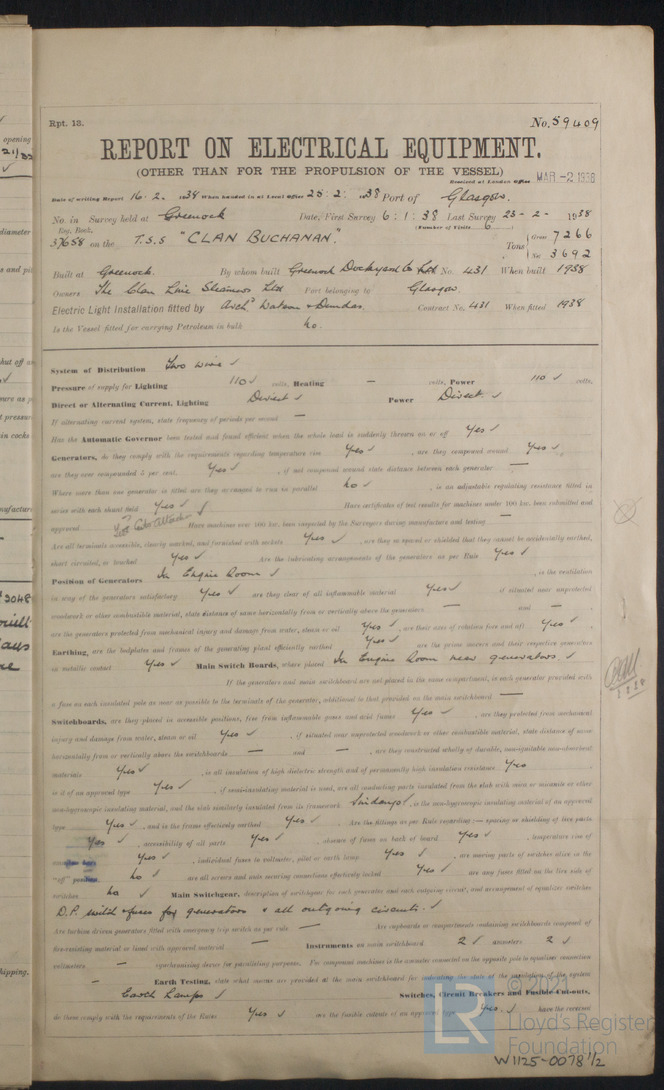 Rpt. 13.
No. 59409
REPORT ON ELECTRICAL EQUIPMENT.
(OTHER THAN FOR THE PROPULSION OF THE VESSEL)
Received at London Office MAR -2 1938
Date of writing Report 16. 2. 1938 When handed in at Local Office 25. 2. 1938 Port of Glasgow.
No. in Survey held at Greenock Date, First Survey 6 : 1 : 38 Last Survey 23 - 2 - 1938
Reg. Book. (Number of Visits 6)
37658 on the T.S.S "CLAN BUCHANAN". Tons Gross 7266
Net 3692
Built at Greenock. By whom built Greenock Dockyard Co Ltd No. 431 When built 1938
Owners The Clan Line Steamers Ltd Port belonging to Glasgow
Electric Light Installation fitted by Archd Watson & Dundas. Contract No. 431 When fitted 1938
Is the Vessel fitted for carrying Petroleum in bulk No.
System of Distribution Two wire ✓
Pressure of supply for Lighting 110 ✓ volts, Heating — volts, Power 110 ✓ volts.
Direct or Alternating Current, Lighting Direct ✓ Power Direct ✓
If alternating current system, state frequency of periods per second —
Has the Automatic Governor been tested and found efficient when the whole load is suddenly thrown on or off Yes ✓
Generators, do they comply with the requirements regarding temperature rise Yes ✓, are they compound wound Yes ✓,
are they over compounded 5 per cent. Yes ✓, if not compound wound state distance between each generator —
Where more than one generator is fitted are they arranged to run in parallel No ✓, is an adjustable regulating resistance fitted in
series with each shunt field Yes ✓ Have certificates of test results for machines under 100 kw. been submitted and
approved Have machines over 100 kw. been inspected by the Surveyors during manufacture and testing —
Are all terminals accessible, clearly marked, and furnished with sockets Yes ✓, are they so spaced or shielded that they cannot be accidentally earthed,
short circuited, or touched Yes ✓ Are the lubricating arrangements of the generators as per Rule Yes ✓
Position of Generators In Engine Room ✓, is the ventilation
in way of the generators satisfactory Yes ✓ are they clear of all inflammable material Yes ✓ if situated near unprotected
woodwork or other combustible material, state distance of same horizontally from or vertically above the generators — and —,
are the generators protected from mechanical injury and damage from water, steam or oil Yes ✓, are their axes of rotation fore and aft Yes ✓
Earthing, are the bedplates and frames of the generating plant efficiently earthed Yes ✓ are the prime movers and their respective generators
in metallic contact Yes ✓ Main Switch Boards, where placed In Engine Room near generators ✓
If the generators and main switchboard are not placed in the same compartment, is each generator provided with
a fuse on each insulated pole as near as possible to the terminals of the generator, additional to that provided on the main switchboard —
Switchboards, are they placed in accessible positions, free from inflammable gases and acid fumes Yes ✓, are they protected from mechanical
injury and damage from water, steam or oil Yes ✓, if situated near unprotected woodwork or other combustible material, state distance of same
horizontally from or vertically above the switchboards — and —, are they constructed wholly of durable, non-ignitable non-absorbent
materials Yes ✓, is all insulation of high dielectric strength and of permanently high insulation resistance Yes
is it of an approved type Yes ✓, if semi-insulating material is used, are all conducting parts insulated from the slab with mica or micanite or other
non-hygroscopic insulating material, and the slab similarly insulated from its framework Sindanyo ✓, is the non-hygroscopic insulating material of an approved
type Yes ✓, and is the frame effectively earthed Yes ✓ Are the fittings as per Rule regarding :— spacing or shielding of live parts
Yes ✓, accessibility of all parts Yes ✓, absence of fuses on back of board Yes ✓, temperature rise of
Yes ✓, individual fuses to voltmeter, pilot or earth lamp Yes ✓, are moving parts of switches alive in the
"off" position No ✓ are all screws and nuts securing connections effectively locked Yes ✓ are any fuses fitted on the live side of
switches No ✓ Main Switchgear, description of switchgear for each generator and each outgoing circuit, and arrangement of equaliser switches
D.P. switch & fuses for generators & all outgoing circuits. ✓
Are turbine driven generators fitted with emergency trip switch as per rule — Are cupboards or compartments containing switchboards composed of
fire-resisting material or lined with approved material — Instruments on main switchboard 2 ✓ ammeters 2 ✓
voltmeters — synchronising device for paralleling purposes. For compound machines is the ammeter connected on the opposite pole to equaliser connection
— Earth Testing, state what means are provided at the main switchboard for indicating the state of the insulation of the system
Earth Lamps ✓ Switches, Circuit Breakers and Fusible Cut-outs,
do these comply with the requirements of the Rules Yes ✓ are the fusible cutouts of an approved type Yes. ✓ have the reversed
© 2021
LR
Lloyd's Register
Foundation
W1125-0078 1/2